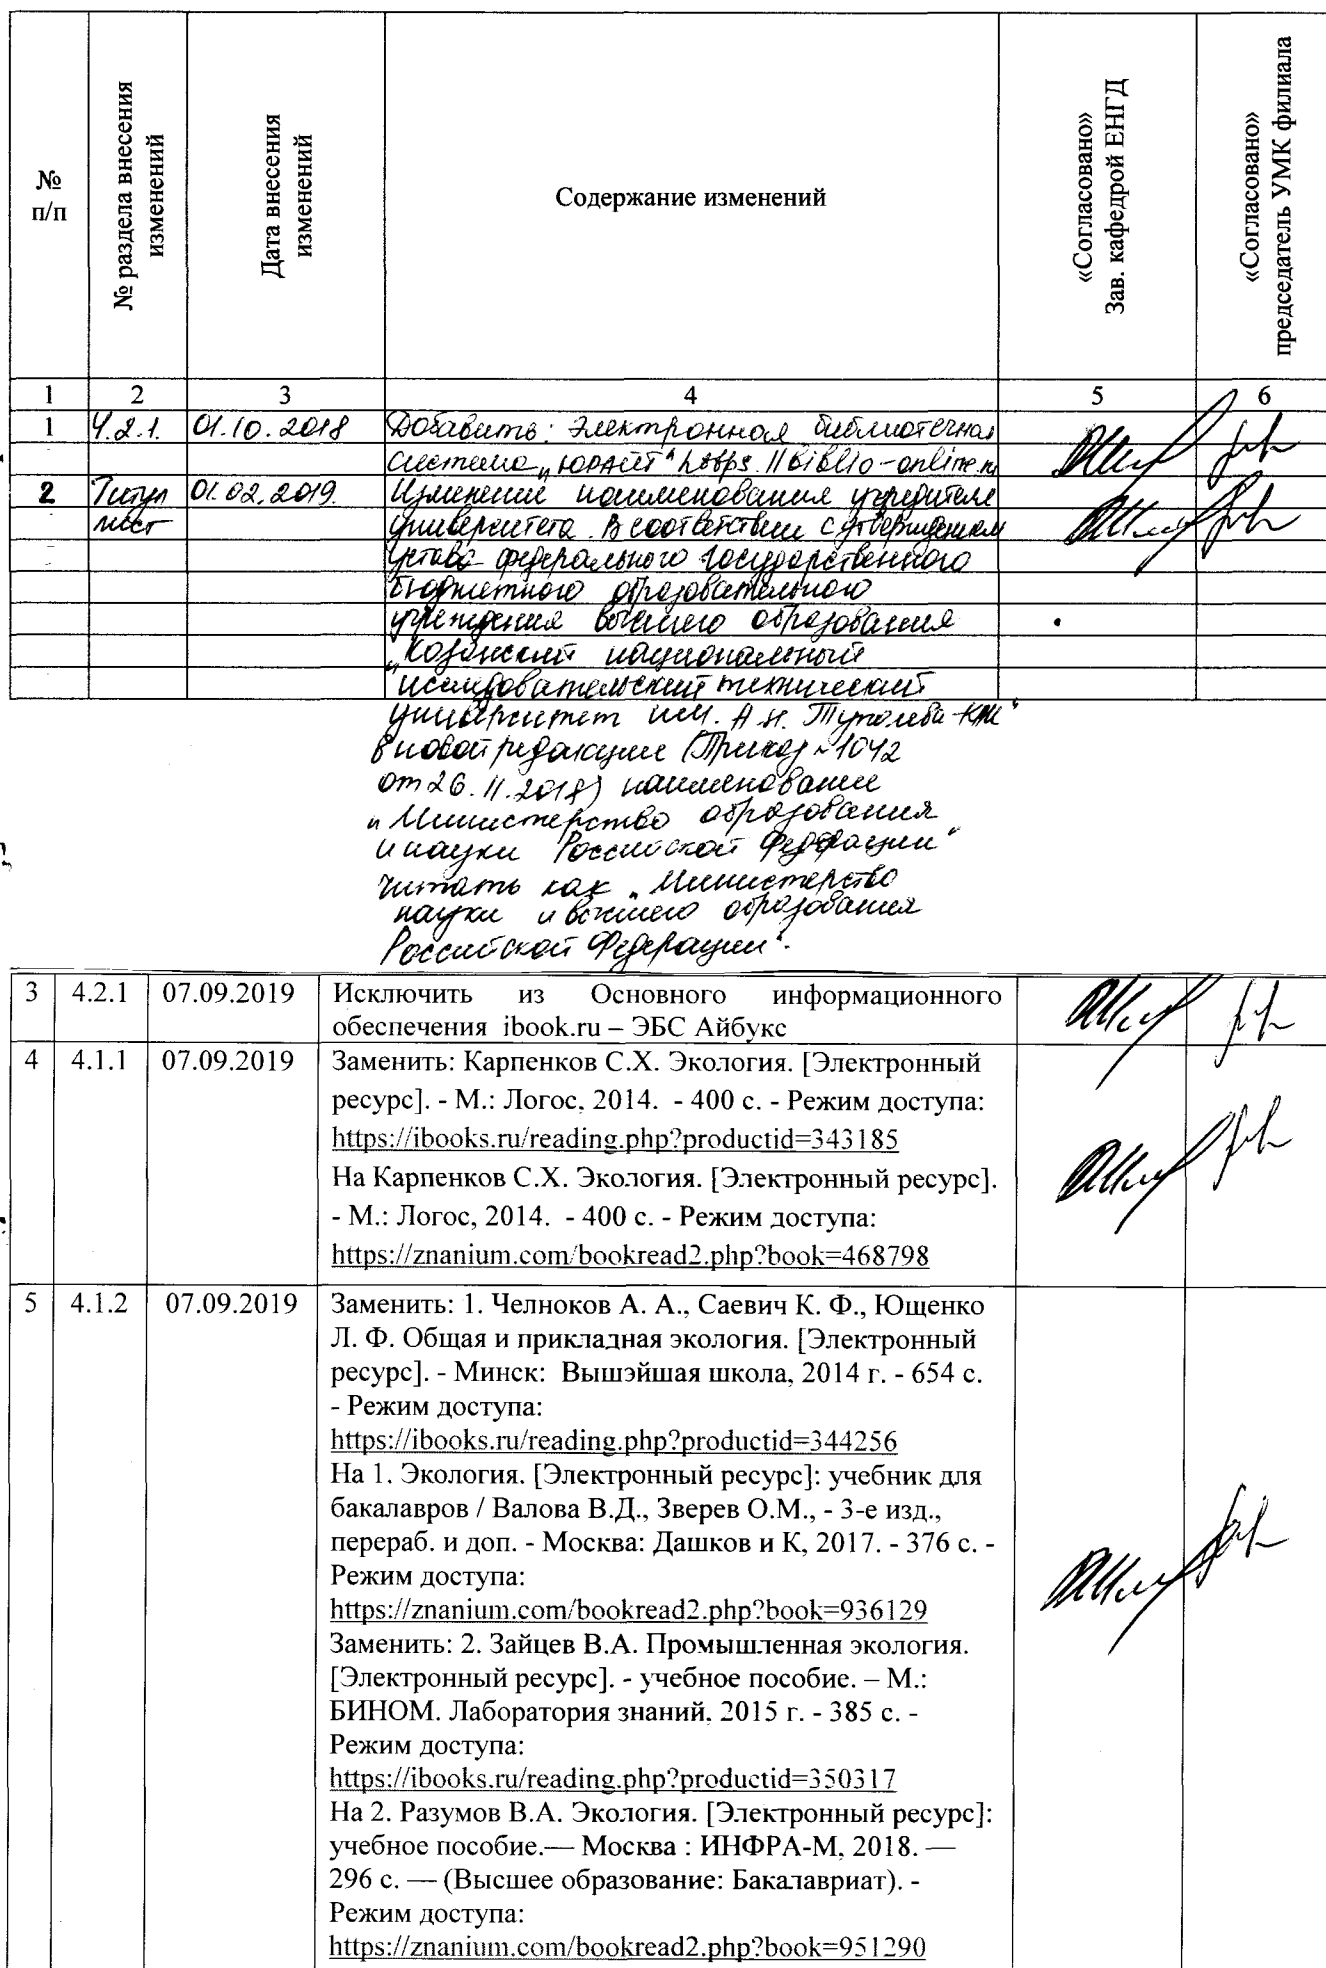 №
п/п
№ раздела внесения
изменений
Дата внесения
изменений
Содержание изменений
«Согласовано»
Зав. кафедрой ЕНГД
«Согласовано»
председатель УМК филиала
1 2 3 4 5 6
1 4.2.1. 01.10.2018 Добавить: Электронная библиотечная
система „ЮРАЙТ“ https://biblio-online.ru
2 Титул 01.02.2019. Изменение наименования учредителя
лист университета. В соответствии с утверждением
устава федерального государственного
бюджетного образовательного
учреждения высшего образования
„Казанский национальный
исследовательский технический
университет им. А.Н. Туполева-КАИ“
в новой редакции (Приказ №1042
от 26.11.2018) наименование
„Министерство образования
и науки Российской Федерации“
читать как „Министерство
науки и высшего образования
Российской Федерации“.
3 4.2.1 07.09.2019 Исключить из Основного информационного
обеспечения ibook.ru – ЭБС Айбукс
4 4.1.1 07.09.2019 Заменить: Карпенков С.Х. Экология. [Электронный
ресурс]. - М.: Логос, 2014. - 400 с. - Режим доступа:
https://ibooks.ru/reading.php?productid=343185
На Карпенков С.Х. Экология. [Электронный ресурс].
- М.: Логос, 2014. - 400 с. - Режим доступа:
https://znanium.com/bookread2.php?book=468798
5 4.1.2 07.09.2019 Заменить: 1. Челноков А. А., Саевич К. Ф., Ющенко
Л. Ф. Общая и прикладная экология. [Электронный
ресурс]. - Минск: Вышэйшая школа, 2014 г. - 654 с.
- Режим доступа:
https://ibooks.ru/reading.php?productid=344256
На 1. Экология. [Электронный ресурс]: учебник для
бакалавров / Валова В.Д., Зверев О.М., - 3-е изд.,
перераб. и доп. - Москва: Дашков и К, 2017. - 376 с. -
Режим доступа:
https://znanium.com/bookread2.php?book=936129
Заменить: 2. Зайцев В.А. Промышленная экология.
[Электронный ресурс]. - учебное пособие. – М.:
БИНОМ. Лаборатория знаний, 2015 г. - 385 с. -
Режим доступа:
https://ibooks.ru/reading.php?productid=350317
На 2. Разумов В.А. Экология. [Электронный ресурс]:
учебное пособие.— Москва : ИНФРА-М, 2018. —
296 с. — (Высшее образование: Бакалавриат). -
Режим доступа:
https://znanium.com/bookread2.php?book=951290